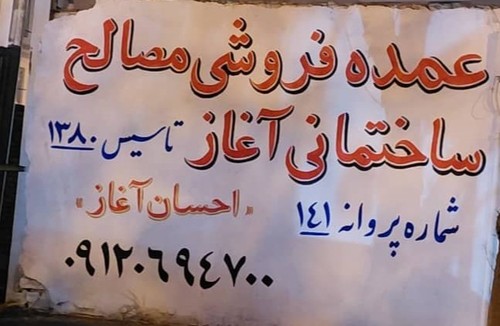 عمده فروشی مصالح
ساختمانی آغاز تاسیس ۱۳۸۰
شماره پروانه ۱۴۱
«احسان آغاز»
۰۹۱۲۰۶۹۴۷۰۰